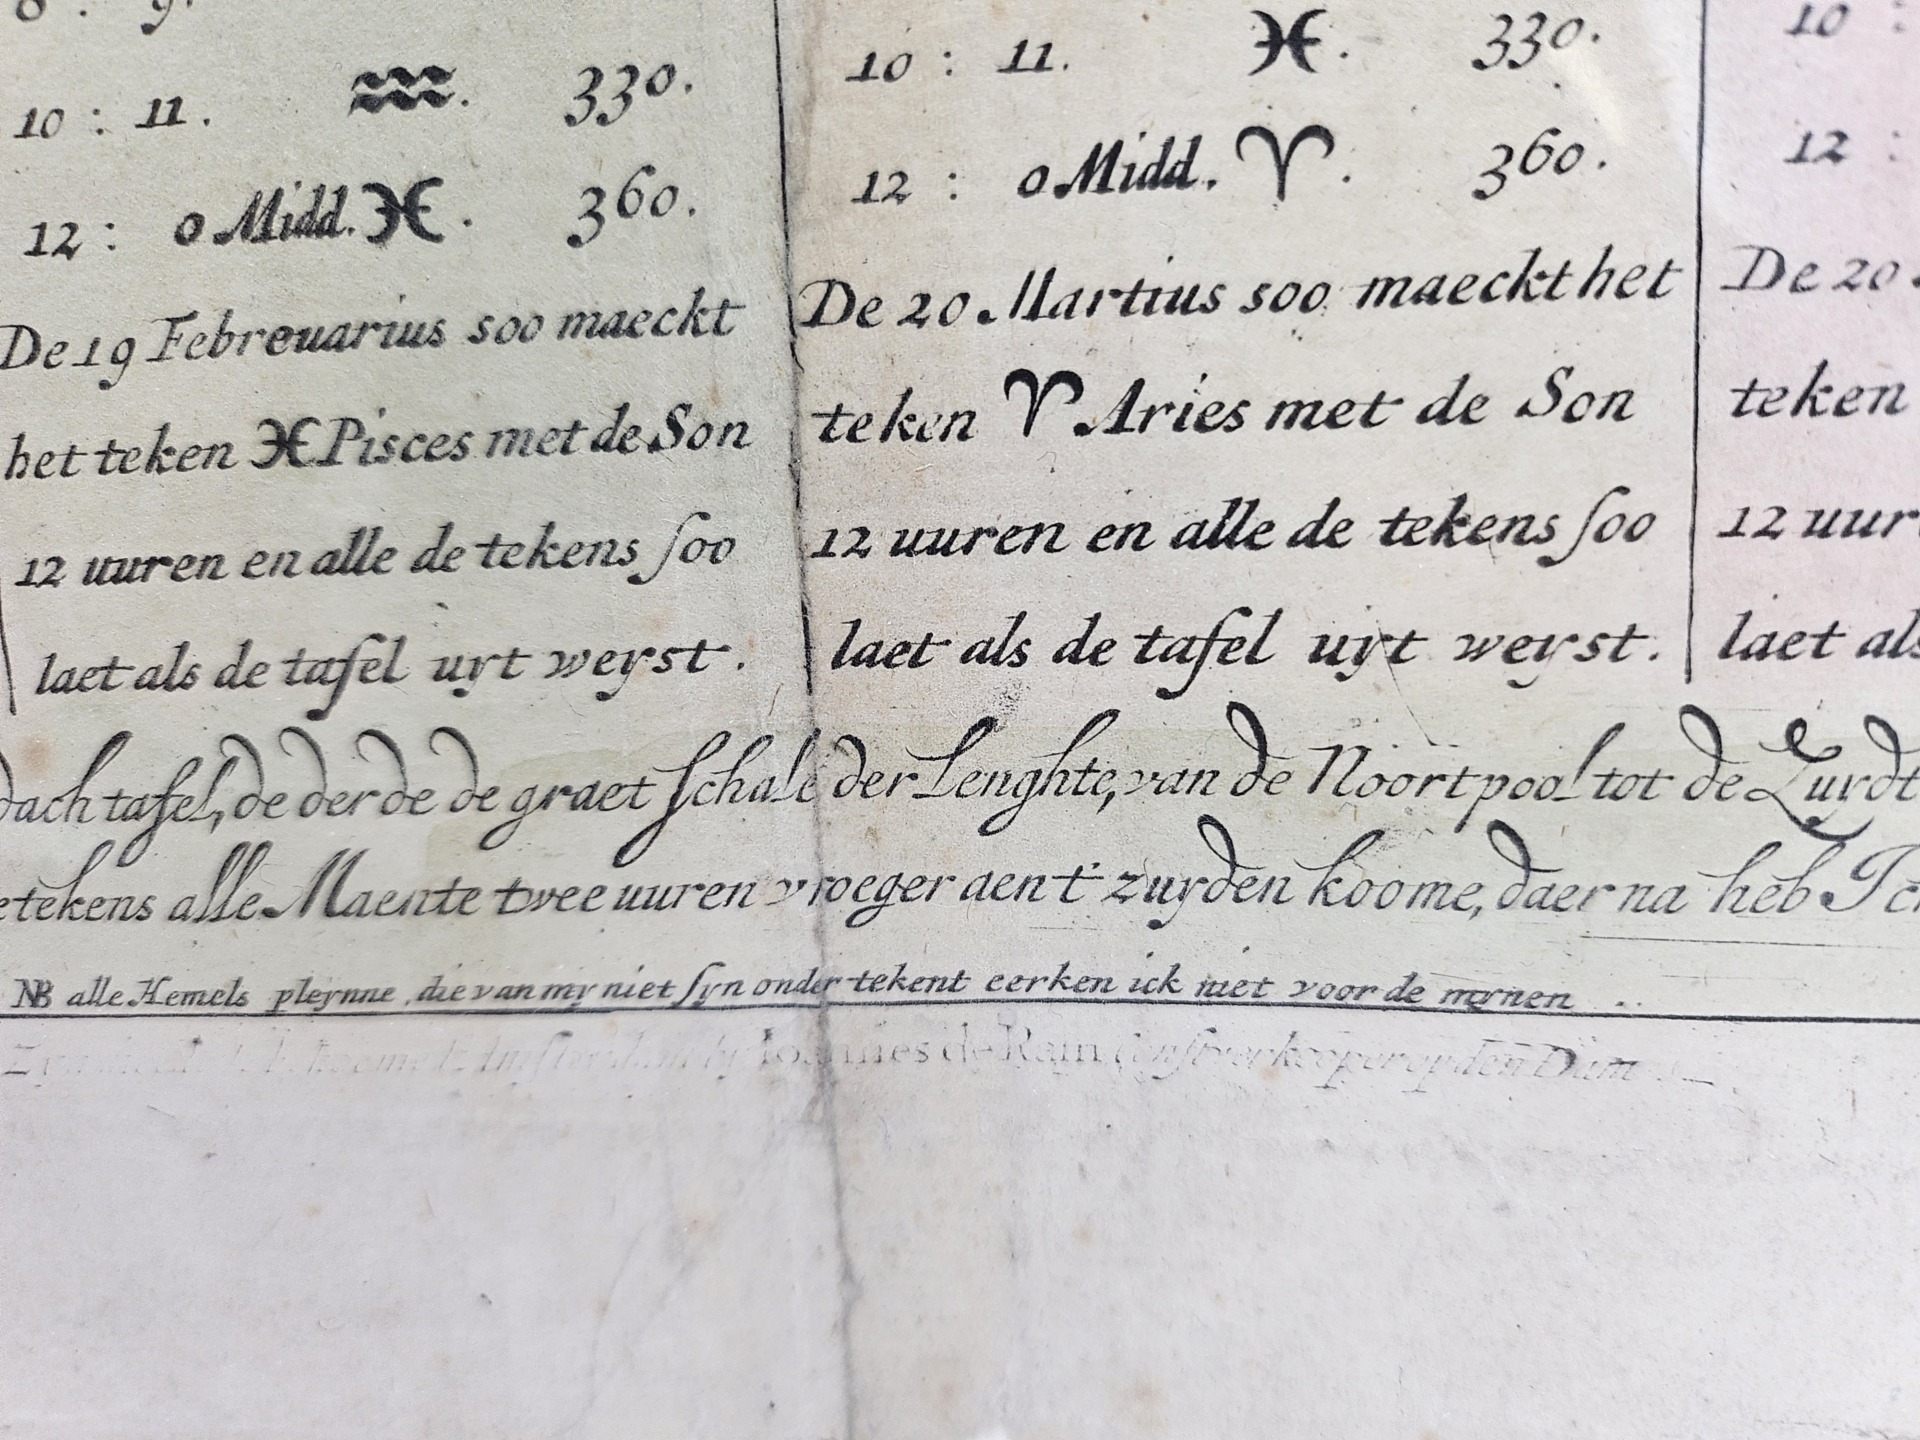 8 : 9.
10 : 11. ♒. 330.
12 : 0 Midd. ♓. 360.
De 19 Febreuarius soo maeckt
het teken ♓ Pisces met de Son
12 uuren en alle de tekens ſoo
laet als de tafel uyt weyst.
10 : 11. ♓. 330.
12 : 0 Midd. ♈. 360.
De 20 Martius soo maeckt het
teken ♈ Aries met de Son
12 uuren en alle de tekens ſoo
laet als de tafel uyt weyst.
10 :
12 :
De 20
teken
12 uur
laet als
dach tafel, de derde de graet ſchale der Lenghte, van de Noortpool tot de Zuydt
etekens alle Maente twee uuren vroeger aen t zuyden koome, daer na heb Ick
NB alle Hemels pleynne, die van my niet ſyn onder tekent eerken ick niet voor de mynen ..
t' Amsterdam by Ioannes de Ram Conſtverkooper op den Dam